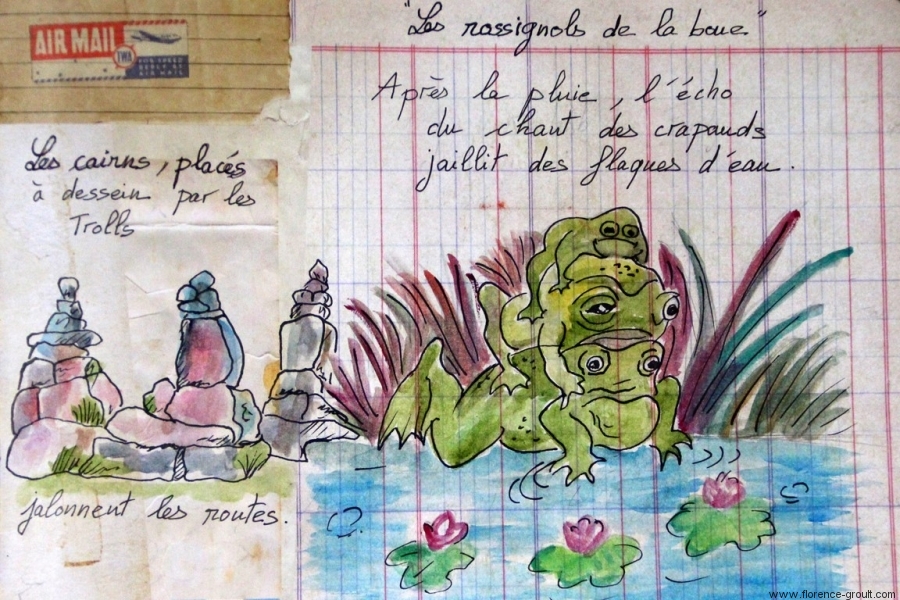 AIR MAIL
TWA
"Les rossignols de la boue"
Après la pluie, l'écho
du chant des crapauds
jaillit des flaques d'eau.
Les cairns, placés
à dessein par les
Trolls
jalonnent les routes.
www.florence-groult.com